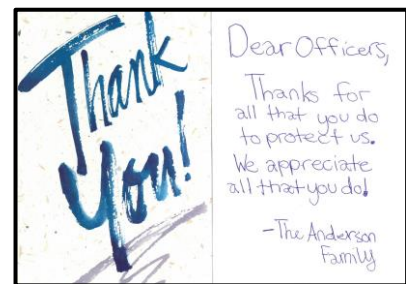 Thank
You!
Dear Officers,
Thanks for
all that you do
to protect us.
We appreciate
all that you do!
-The Anderson
Family